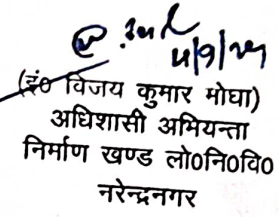 4/9/24
(इं० विजय कुमार मोघा)
अधिशासी अभियन्ता
निर्माण खण्ड लो०नि०वि०
नरेन्द्रनगर